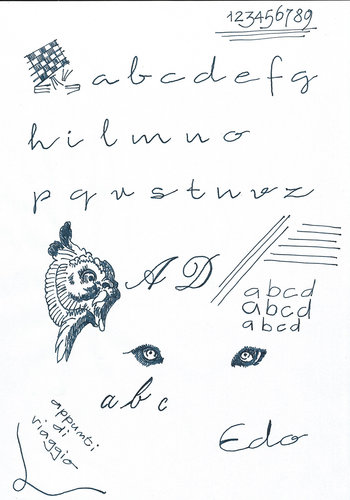 123456789
a b c d e f g
h i l m n o
p q r s t u v z
A D
abcd
abcd
abcd
a b c
appunti
di
viaggio
Edo